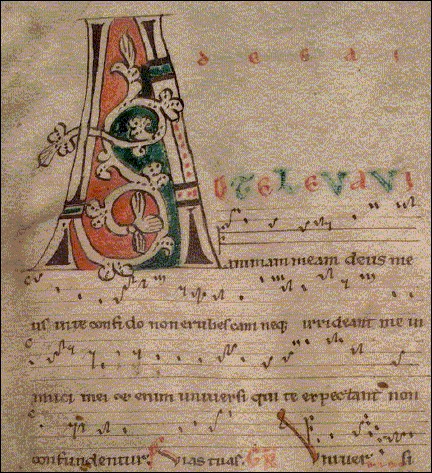 AD TE LEVAVI
animam meam deus me
us in te confido non erubescam neq; irrideant me in
imici mei et enim universi qui te expectant non
confundentur. Vias tuas. GR Univer si